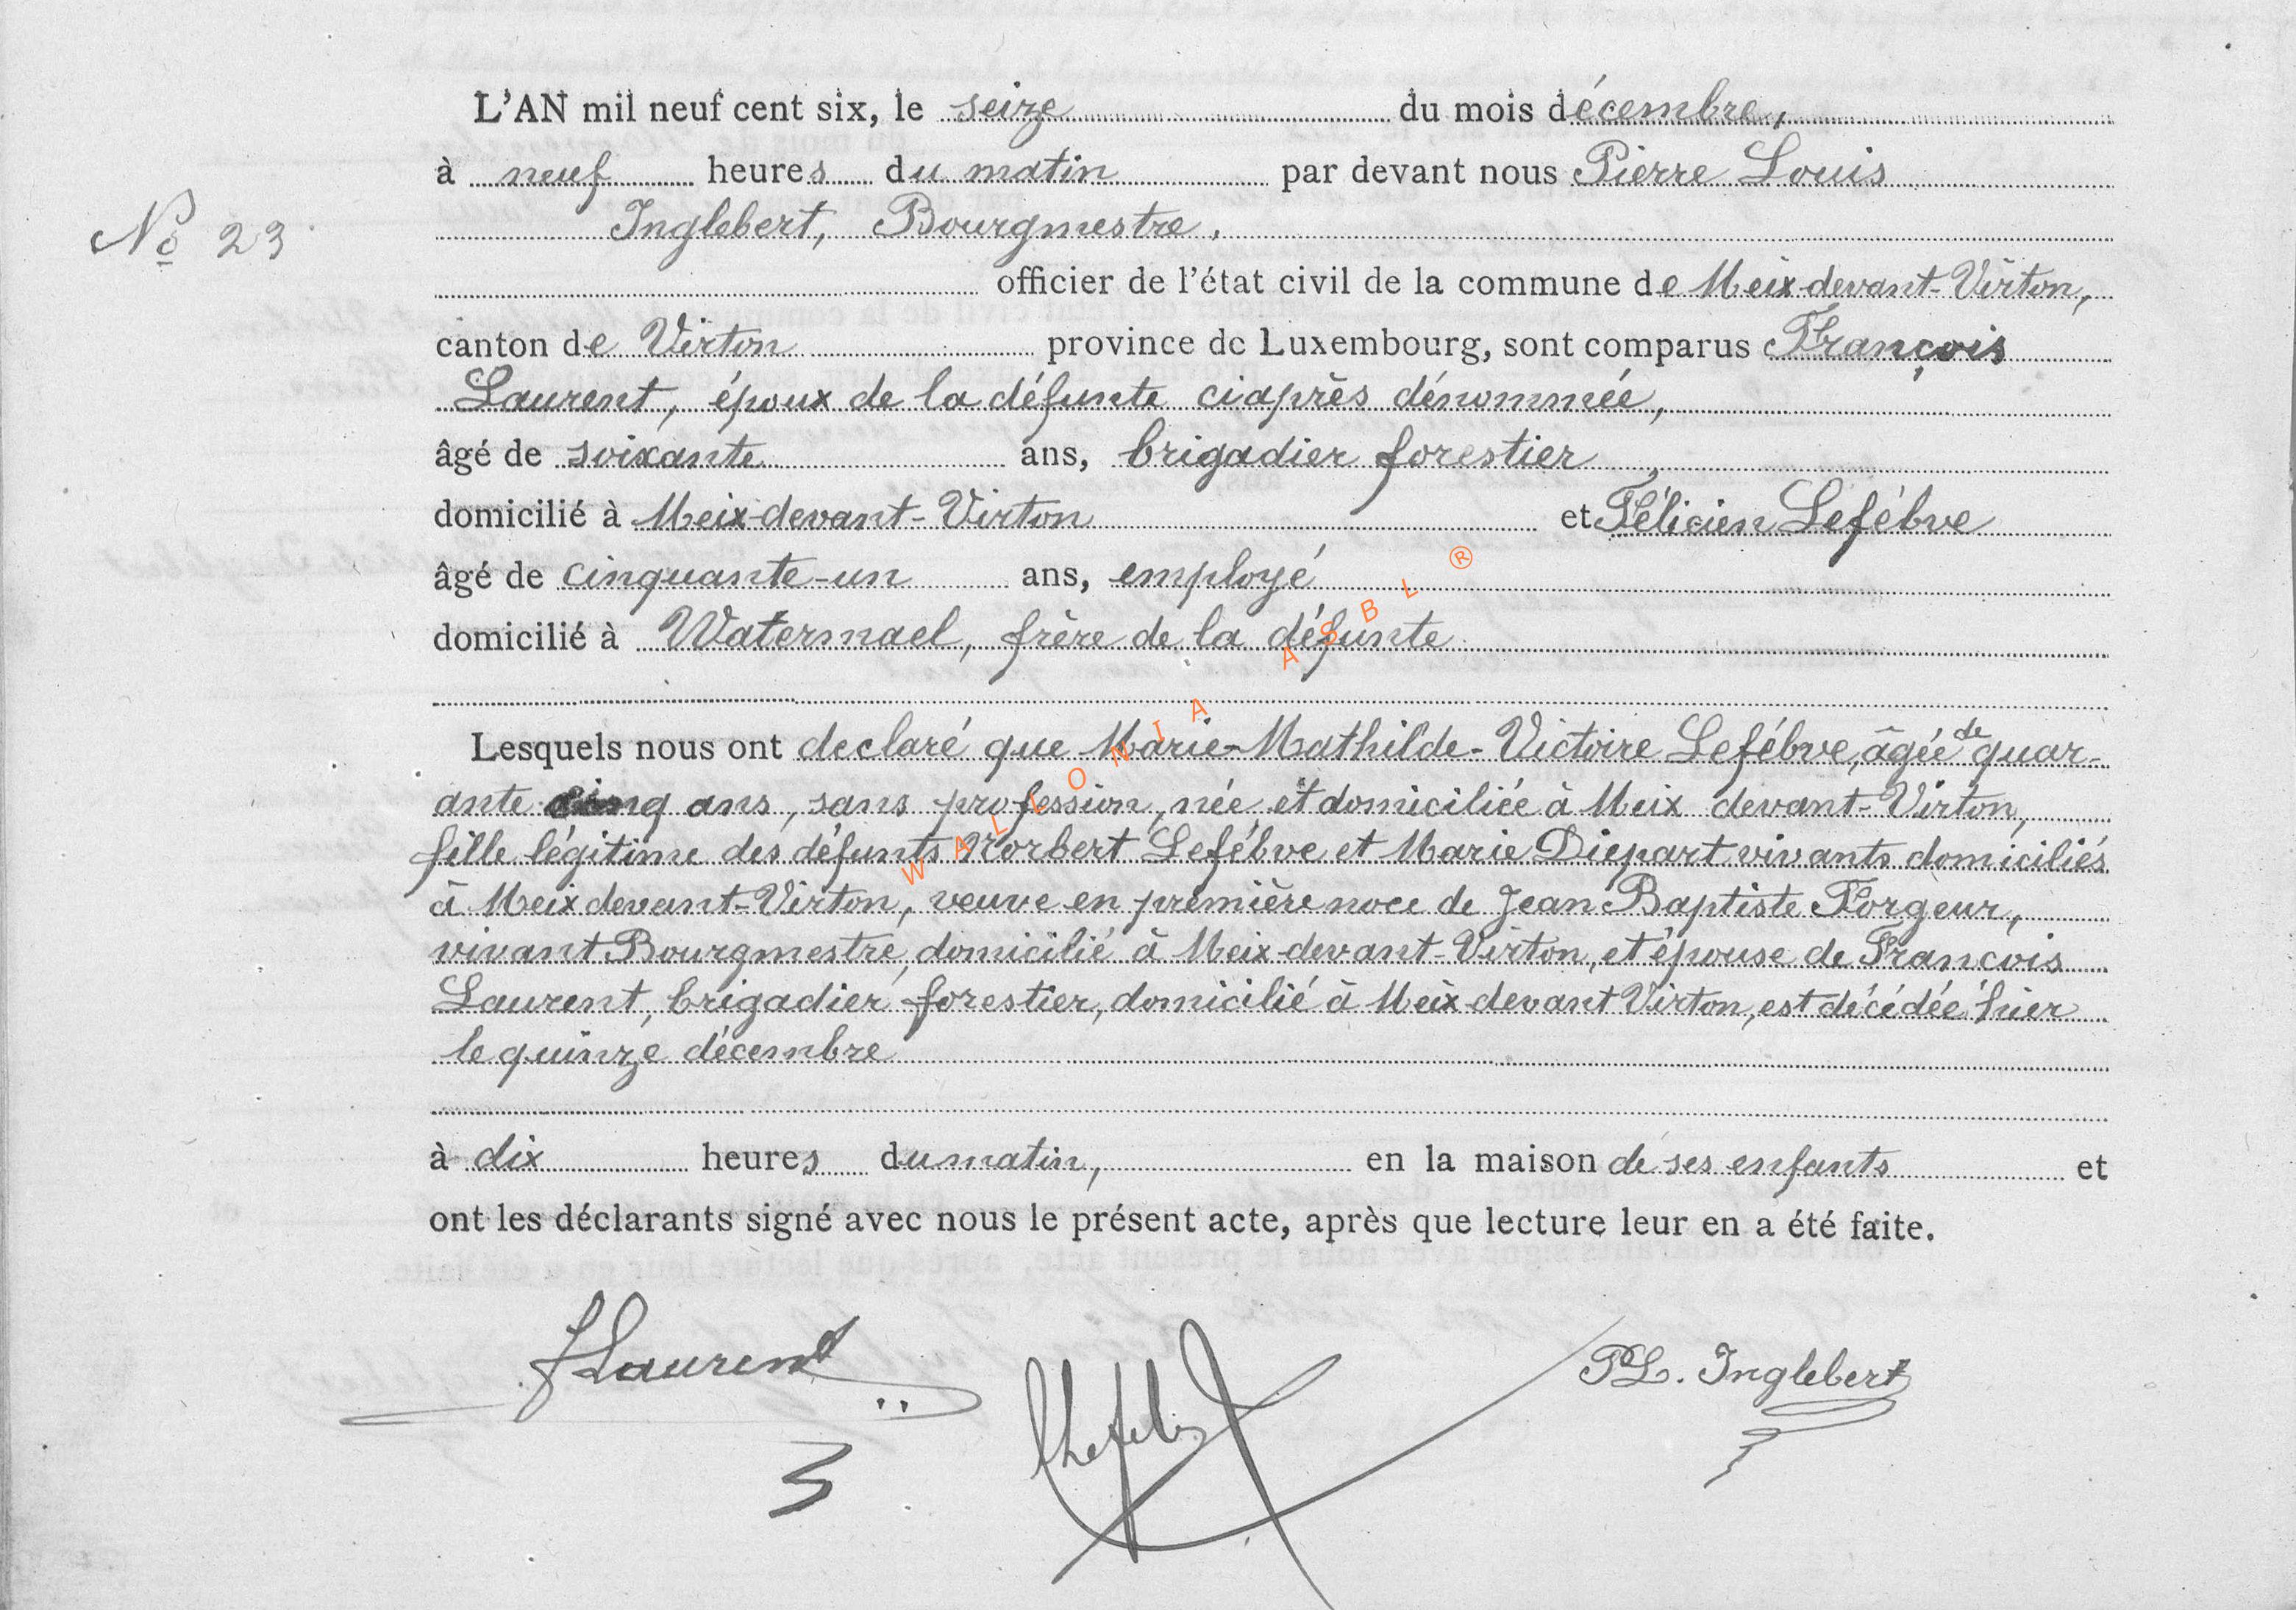 L'AN mil neuf cent six, le seize du mois décembre,
à neuf heures du matin par devant nous Pierre Louis
Nº 23
Inglebert, Bourgmestre,
officier de l'état civil de la commune de Meix-devant-Virton,
canton de Virton province de Luxembourg, sont comparus François
Laurent, époux de la défunte ciaprès dénommée,
âgé de soixante ans, brigadier forestier,
domicilié à Meix-devant-Virton et Félicien Lefébve
âgé de cinquante-un ans, employé
domicilié à Watermael, frère de la défunte
Lesquels nous ont declaré que Marie-Mathilde-Victoire Lefébve, âgée de quar-
ante cinq ans, sans profession, née et domiciliée à Meix devant-Virton,
fille légitime des défunts Norbert Lefébve et Marie Diepart vivants domiciliés
à Meix devant-Virton, veuve en première noce de Jean Baptiste Forgeur,
vivant Bourgmestre, domicilié à Meix-devant-Virton, et épouse de François
Laurent, brigadier forestier, domicilié à Meix-devant Virton, est décédée hier
le quinze décembre
à dix heures du matin, en la maison de ses enfants et
ont les déclarants signé avec nous le présent acte, après que lecture leur en a été faite.
fLaurent
PL. Inglebert
WALLONIA ASBL ®